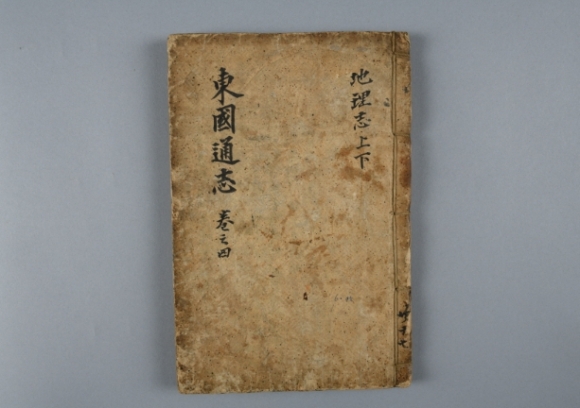 東國通志 卷之四
地理志上下
共十七